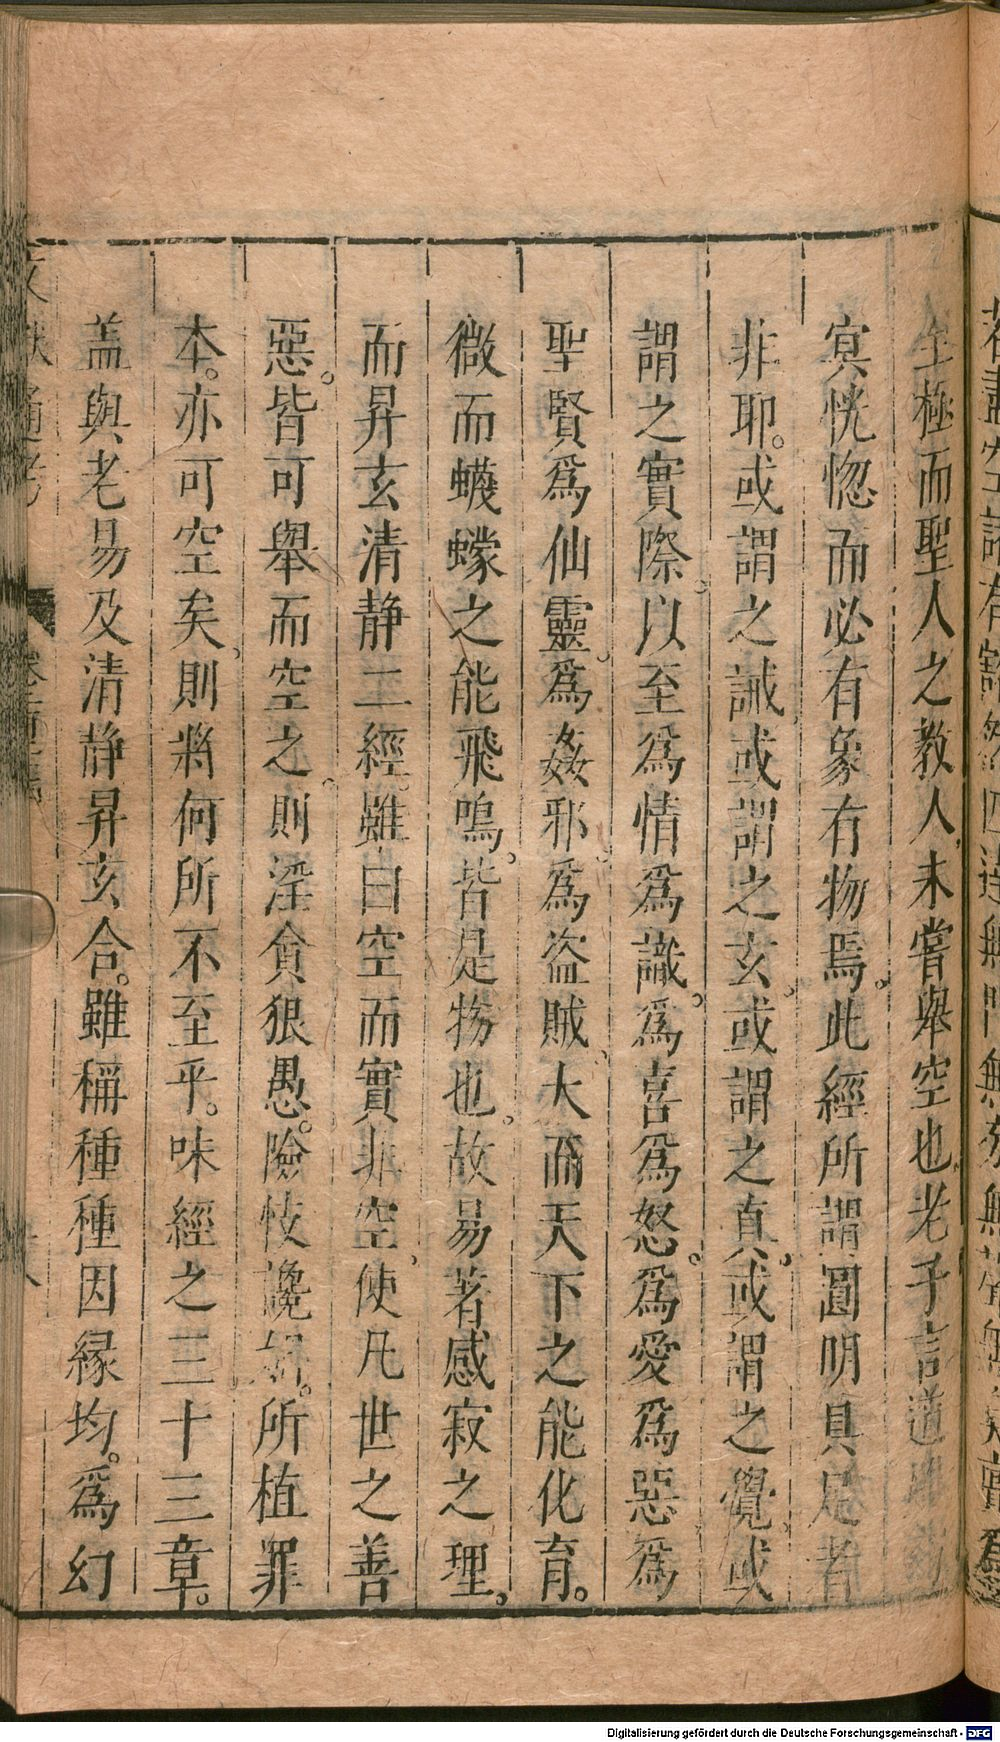 至極而聖人之教人未嘗舉空也老子言道
冥恍惚而必有象有物焉。此經所謂圓明具足者
非耶。或謂之誠或謂之玄。或謂之真。或謂之覺。或
謂之實際。以至爲情爲識。爲喜爲怒。爲愛爲惡爲
聖賢爲仙靈。爲姦邪。爲盗賊、大而天下之能化育。
微而蠛蠓之能飛鳴。皆是物也。故易著感寂之理。
而昇玄清静二經。雖曰空而實非空、使凡世之善
惡。皆可舉而空之。則淫貪狠愚。險忮讒 。所植罪
本。亦可空矣、則將何所不至乎。味經之三十三章。
盖與老易及清静昇玄合。雖稱種種因縁均。爲幻
文獻通考
卷二百二十
Digitalisierung gefördert durch die Deutsche Forschungsgemeinschaft - DFG